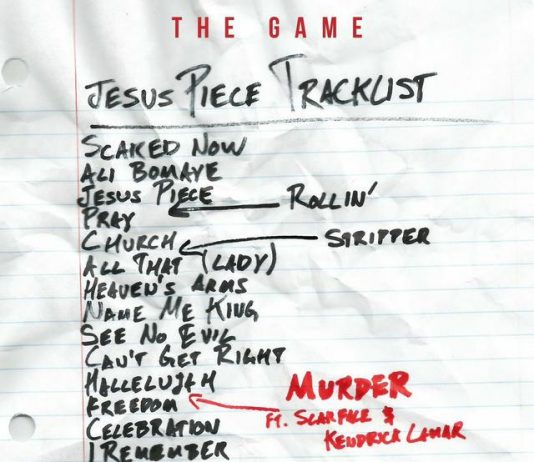 THE GAME
JESUS PIECE TRACKLIST
SCARED NOW
ALI BOMAYE
JESUS PIECE
ROLLIN'
PRAY
CHURCH
STRIPPER
ALL THAT (LADY)
HEAVEN'S ARMS
NAME ME KING
SEE NO EVIL
CAN'T GET RIGHT
HALLELUJAH
MURDER
FT. SCARFACE &
KENDRICK LAMAR
FREEDOM
CELEBRATION
I REMEMBER